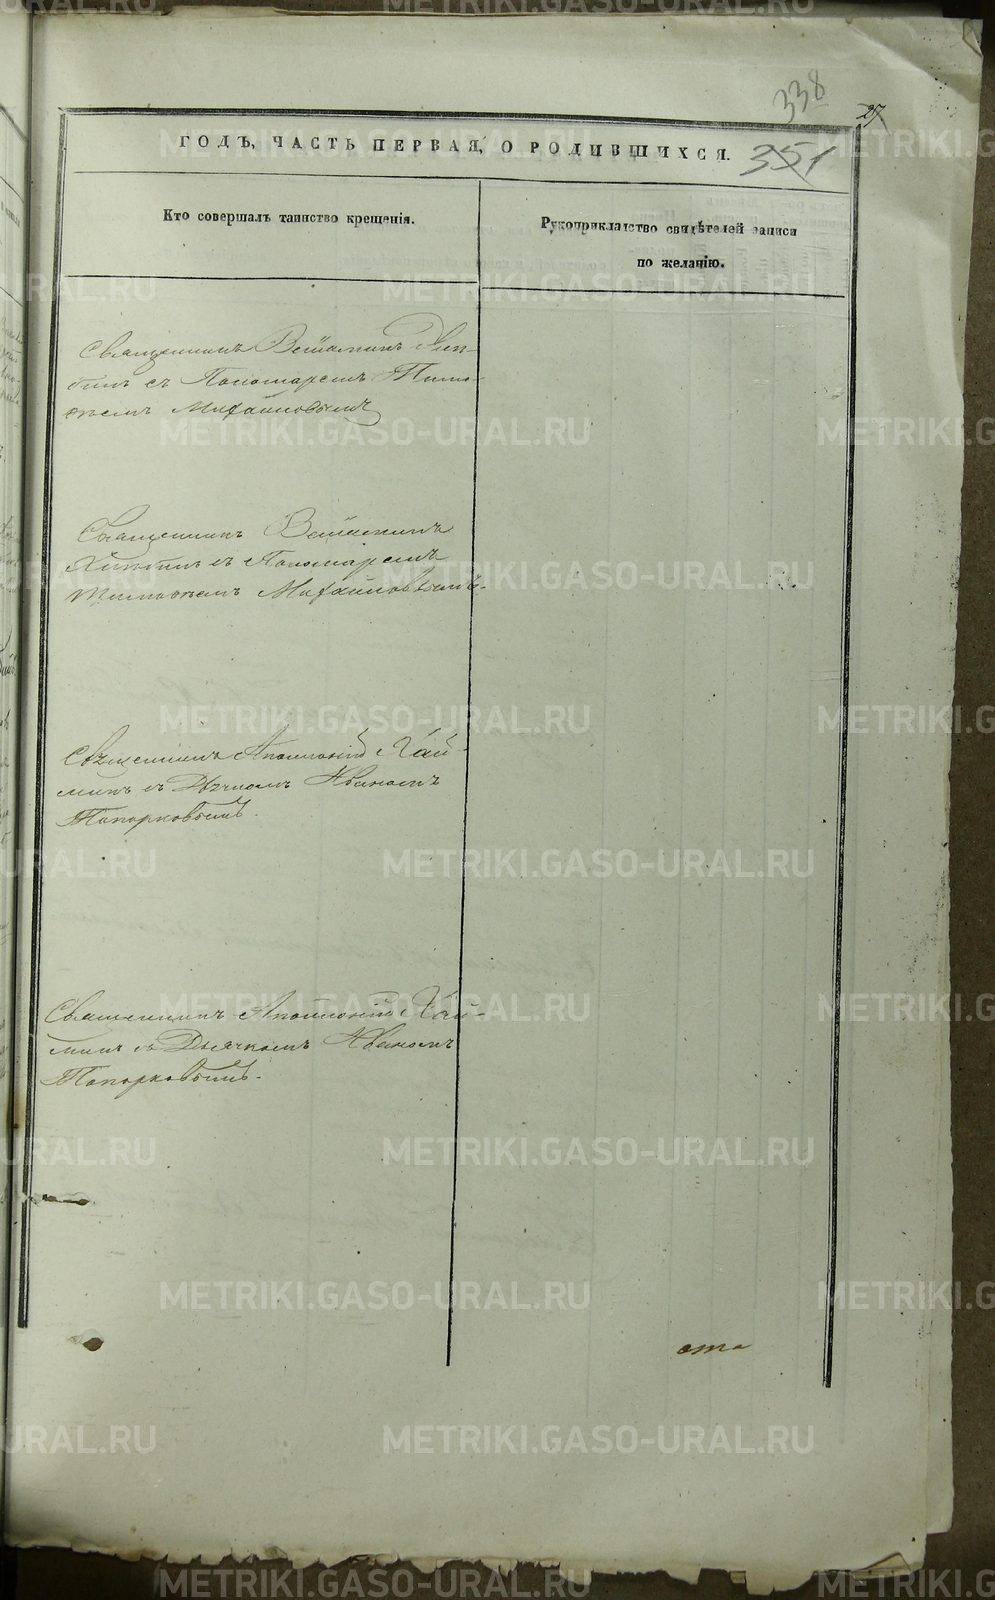 338
27
ГОДЪ, ЧАСТЬ ПЕРВАЯ, О РОДИВШИХСЯ.
351
Кто совершалъ таинство крещенія.
Рукоприкладство свидѣтелей записи
по желанію.
Священникъ
съ Пономаремъ Тимо-
ѳеемъ Михайловымъ
Священникъ
съ Пономаремъ
Тимоѳеемъ Михайловымъ.
Священникъ Аполлоній
съ Дьячкомъ Иваномъ
Топорковымъ.
Священникъ Аполлоній
съ Дьячкомъ Иваномъ
Топорковымъ.
METRIKI.GASO-URAL.RU